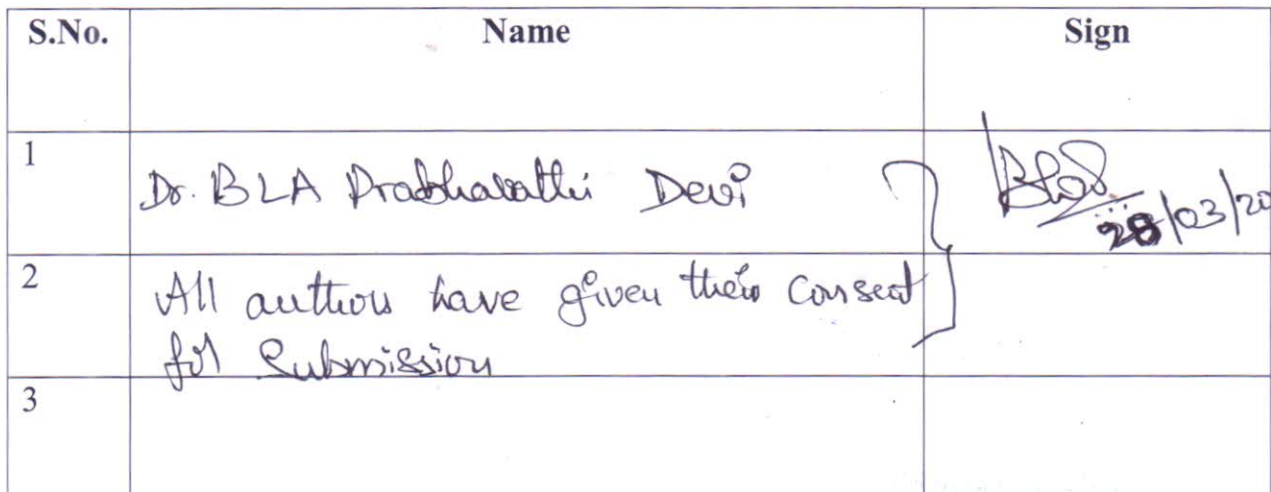 S.No. Name Sign
1 Dr. BLA Prabhavathi Devi
28/03/20
2 All authors have given their consent
for Submission
3